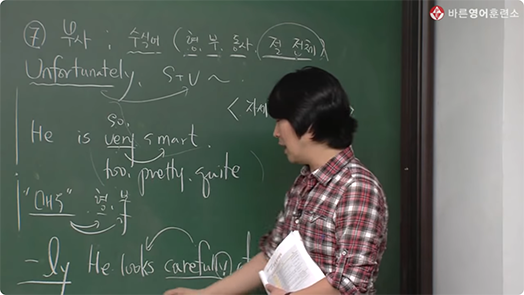 바른영어훈련소
⑦ 부사 ; 수식어 (형, 부, 동사, 절 전체)
Unfortunately, S+V ~
He is very smart.
so,
too, pretty, quite
"매우" 형, 부
-ly He looks carefully at